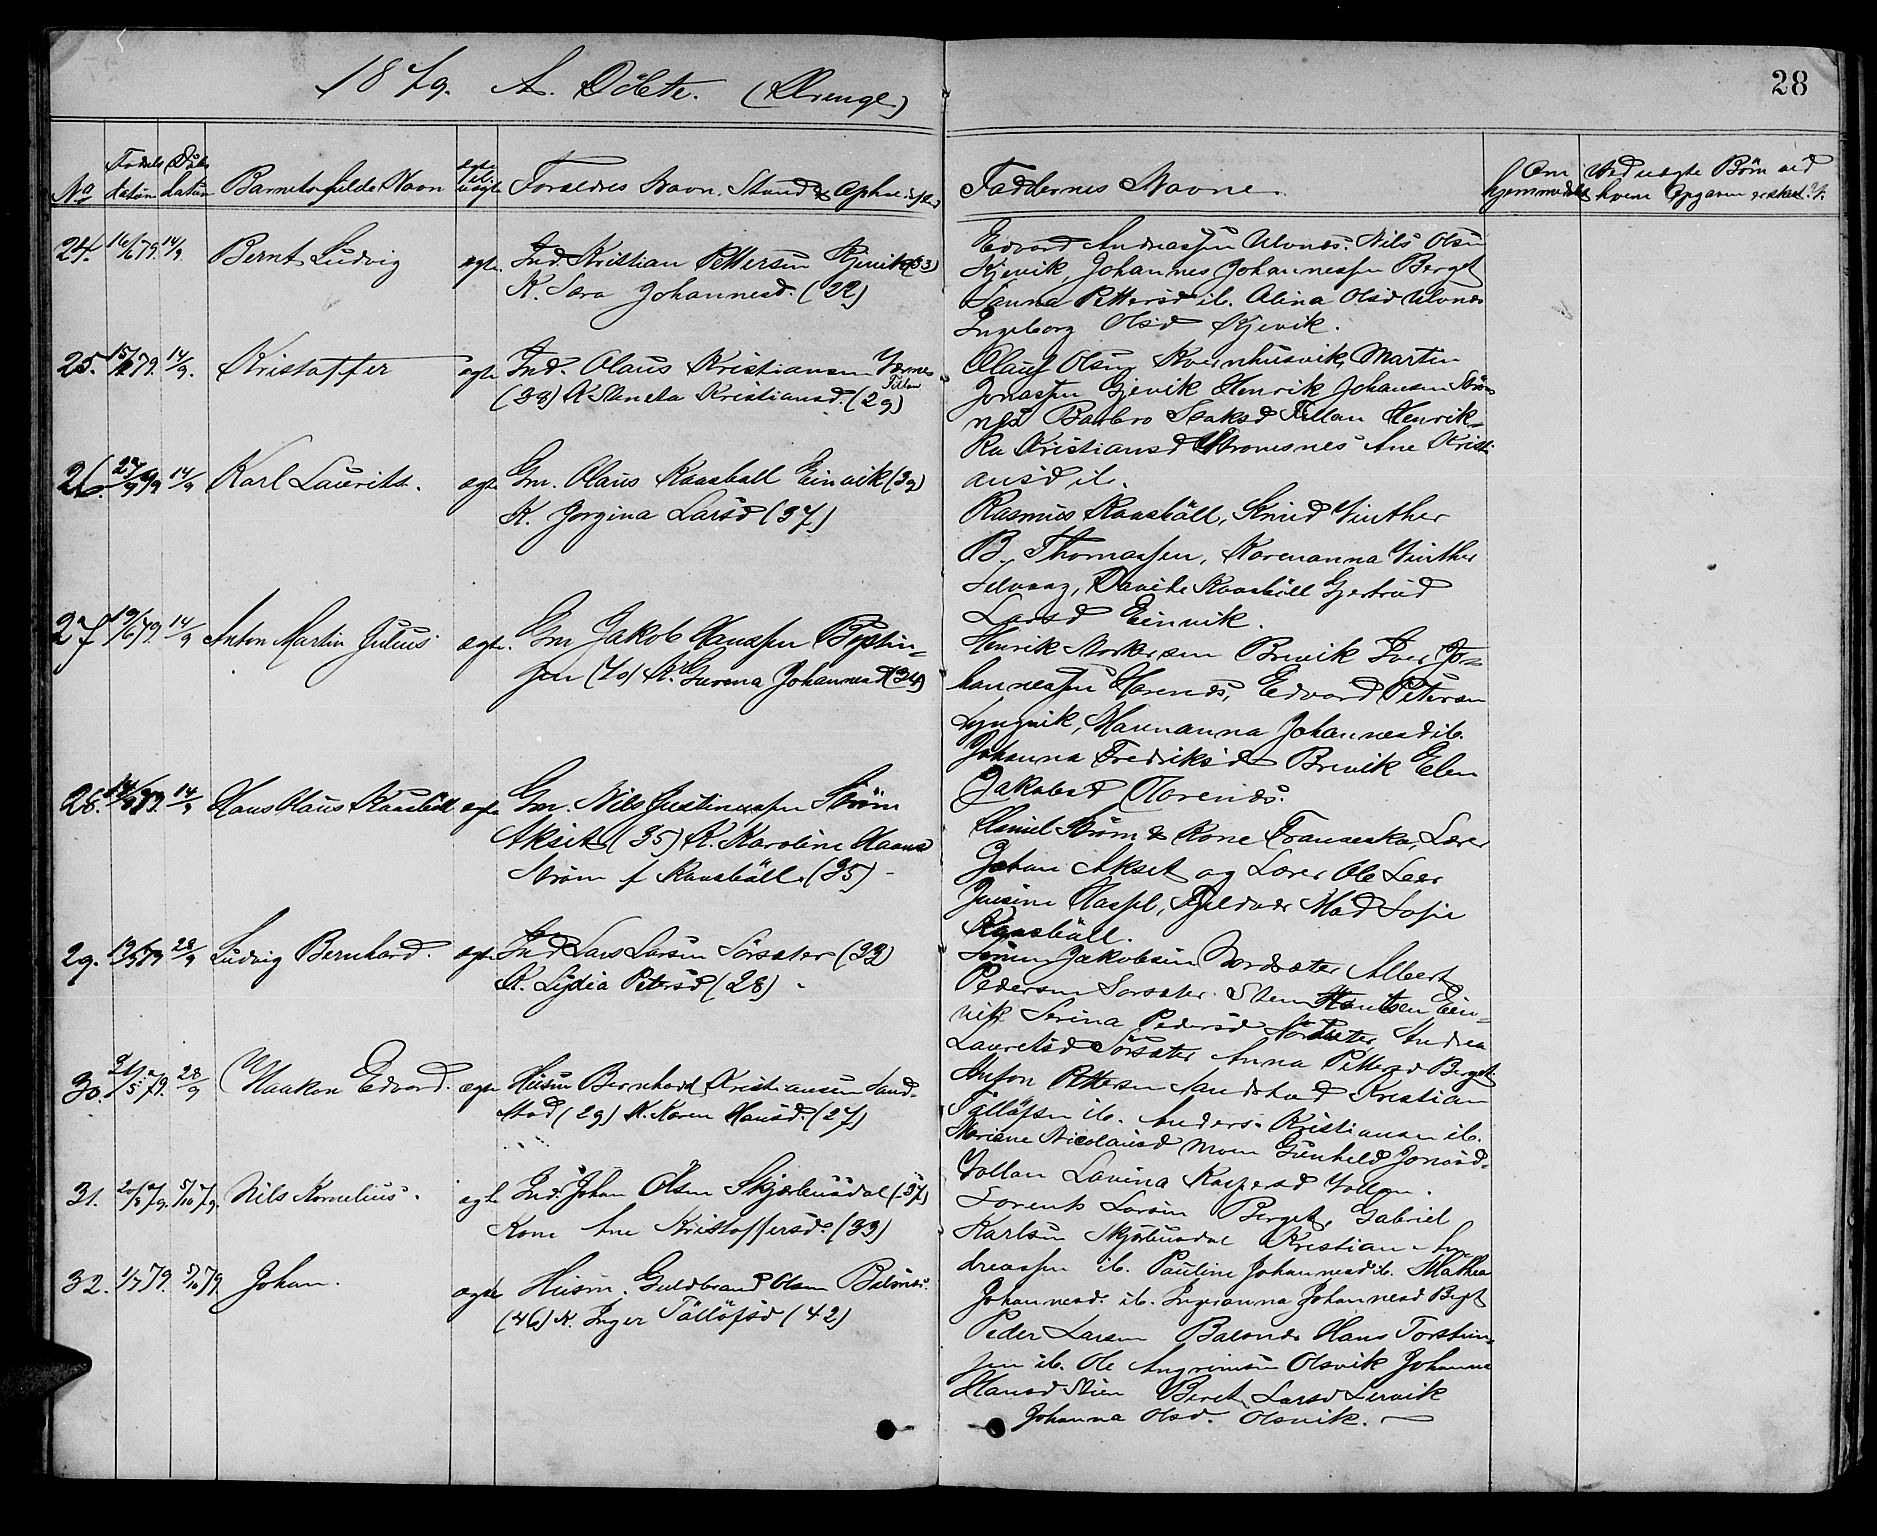 1879. A. Döbte. (Drenge)
28
No
Fødsels datum
Døbs datum
Barnets fulde Navn
ægte el. uægte
Forældres Navn, Stand &
Faddernes Navne.
Om hjemmedøbt
Ved uægte Børn ved
24. 16/6 79. 14/9. Bernt Ludvig ægte. Ind. Kristian Pettersen Kjevik (33)
K. Sara Johannesd. (22)
Edvard Andreassen Ulvnes. Nils Olsen
Kjevik, Johannes Johannessen Berget
Sanna Pettersd ib. Alina Olsd Ulvnes
Ingeborg Olsd Kjevik.
25. 79. 14/9. Kristoffer ægte Ind. Olaus Kristiansen
(33) K. Kristiansd. (29)
Olaus Olsen Kvernhusvik, Martin
Jonassen Gjevik Henrik Johansen Strøm
nes Barbro Isaksd Fillan Henrik-
ka Kristiansd Strømesnes Ane Kristi
ansd ib.
26. 14/9 Karl Laurits. ægte Gm. Olaus Kaasböll Einvik (39)
K. Jørgina Larsd (37)
Rasmus Kaasböll, Knud Vinther
B. Thomassen, Karenanna Vinther
Selvaag, Davide Kaasböll Gjertrud
Larsd Einvik.
27 19/6 79. 14/9 Anton Martin Julius ægte. Gm Jakob Hanssen
sen (70) K. Gurena Johannesd (34)
Henrik Brevik Iver Jo-
hannessen Havnes, Edvard Petersen
Lyngvik, Marenanna Johannesd ib.
Johanna Fredriksd Brevik Elen
Jakobsd Havenes.
28. 79. 14/9 Hans Olaus Kaasböll ægte Gm. Nils Justinussen Strøm
Akset (35) K. Karoline Hanna
Strøm f Kaasböll. (35)
Daniel Strøm & Kone Franseska, Lærer
Johan Akset og Lærer Ole Leer
Jusine Hassel, Fjeldvær Mad Sofie
Kaasböll.
29. 13/5 79 28/9 Ludvig Bernhard. ægte Ind Lars Larsen Sörsæter (32)
K. Lydia Petersd (28)
Simen Jakobsen Nordsæter Albert
Pedersen Sorsæter. Sten Knutsen Ein-
vik Serina Pedersd Nordsæter, Andrea
Lauretsd Sörsæter Anna Pettersd Berget
30. 21/5 79. 28/9 Haakon Edvard. ægte Husm Bernhard Kristiansen Sand-
stad (29) K. Karen Hansd. (27)
Anton Pettersen Sandstad Kristian
Tölløfsen ib. Anders Kristiansen ib.
Mariane Nicolaisd Moen Gunhild Jonasd.
Vollan Lavina Kaspersd Vollan.
31. 20/8 79. 5/10 79. Nils Kornelius. ægte Ind. Johan Olsen Skjærbusdal (37)
Kone Ane Kristoffersd. (33)
Lorents Larsen Berget, Gabriel
Karlsen Skjærbusdal Kristian An-
dreassen ib. Pauline Johannesd ib. Mathea
Johannesd. ib. Ingeranna Johannesd Berget
32. 1/7 79. 5/10 79 Johan. ægte Husm. Guldbrand Olsen Balsnes.
(46) K. Inger Tölløfsd (42)
Peder Larsen Balsnes Hans Torstein-
sen ib. Ole Angrimsen Olsvik Johanna
Hansd Beret Larsd Lervik
Johanna Olsd. Olsvik.